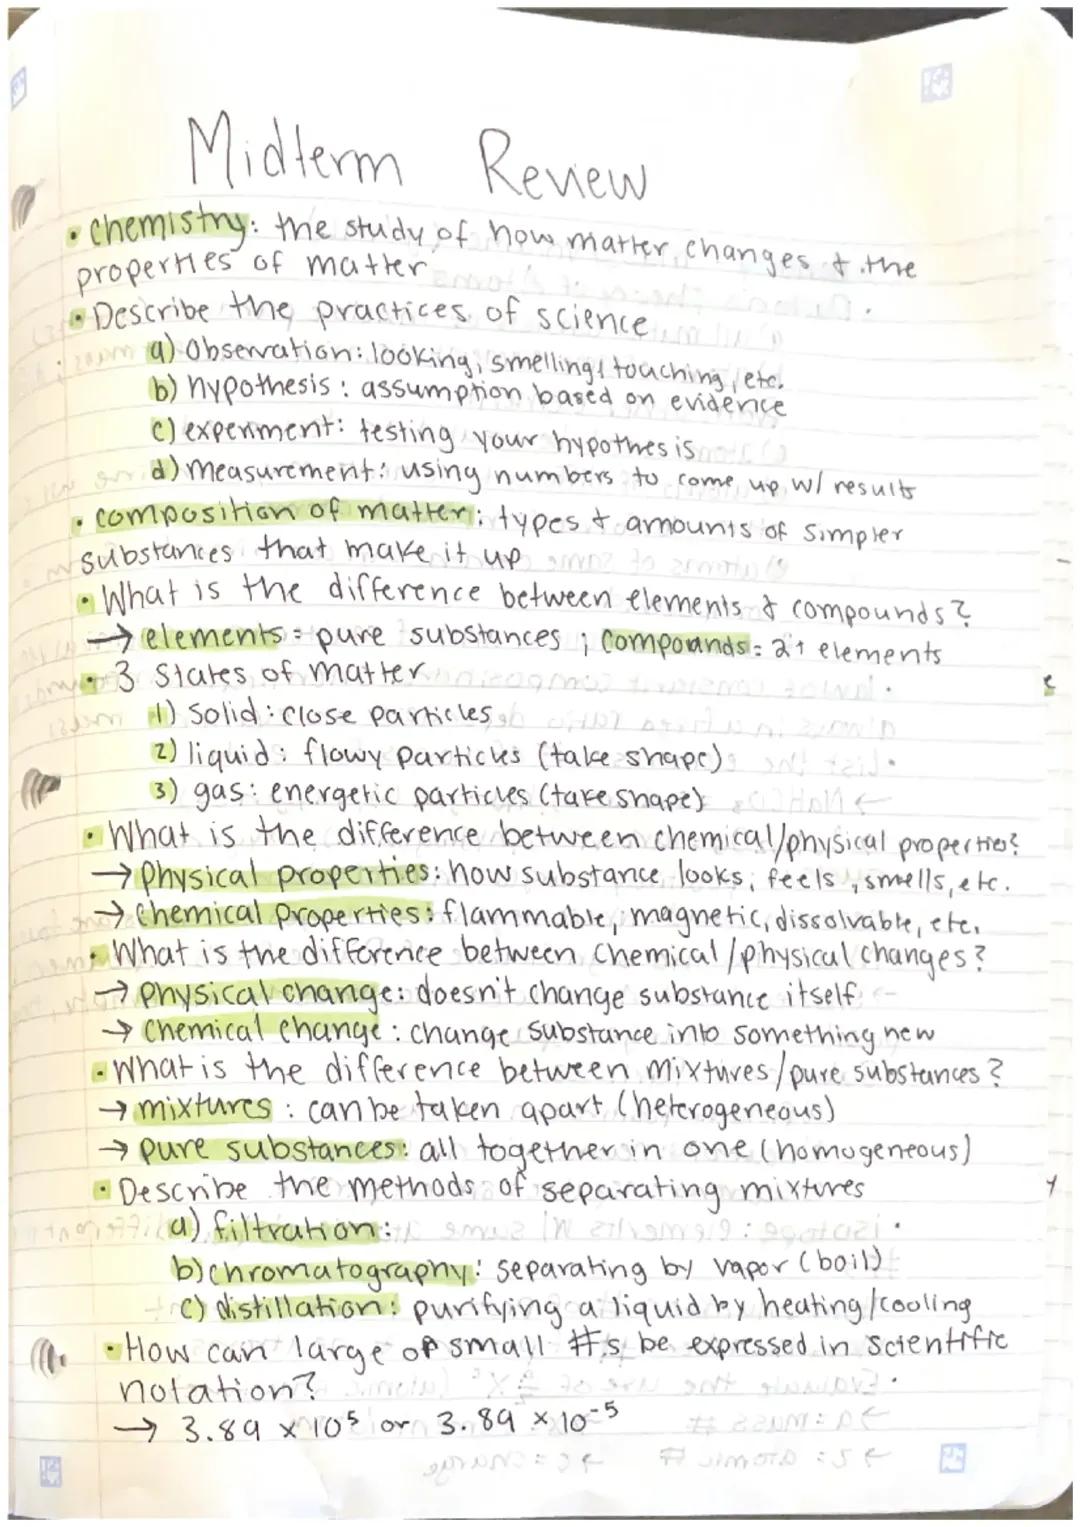 Midterm Review
• chemistry: the study of how matter changes & the
properties of matter
• Describe the practices of science
a) Observation: looking, smelling, touching, etc.
b) hypothesis: assumption based on evidence
c) experiment: testing your hypothesis
d) measurement: using numbers to come up w/ results
• composition of matter: types & amounts of simpler
substances that make it up
• What is the difference between elements & compounds?
→ elements = pure substances ; compounds = 2+ elements
• 3 States of matter
1) Solid: close particles
2) liquid: flowy particles (take shape)
3) gas: energetic particles (take shape)
• What is the difference between chemical/physical properties?
→ physical properties: how substance looks, feels, smells, etc.
→ chemical properties: flammable, magnetic, dissolvable, etc.
• What is the difference between chemical/physical changes?
→ physical change: doesn't change substance itself
→ chemical change: change substance into something new
• What is the difference between mixtures/pure substances?
→ mixtures: can be taken apart (heterogeneous)
→ pure substances: all together in one (homogeneous)
• Describe the methods of separating mixtures
a) filtration:
b) chromatography: separating by vapor (boil)
c) distillation: purifying a liquid by heating/cooling
• How can large or small #s be expressed in scientific
notation?
→ 3.89 × 10⁵ or 3.89 × 10⁻⁵